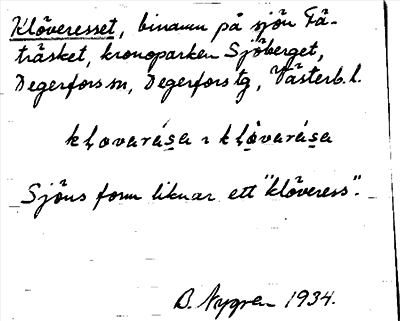 Klöveresset, binamn på sjön Tå-
träsket, kronoparken Sjöberget,
Degerfors sn, Degerfors tg, Västerb. l.
kḷovarása ı kḷóvarása
Sjöns form liknar ett "klöveress".
B. Nygren 1934.